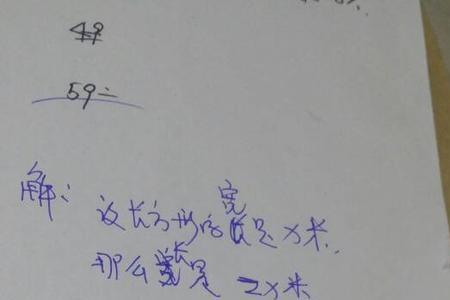 49
59=
解：设长方形的宽是x米.
那么长是 2x米